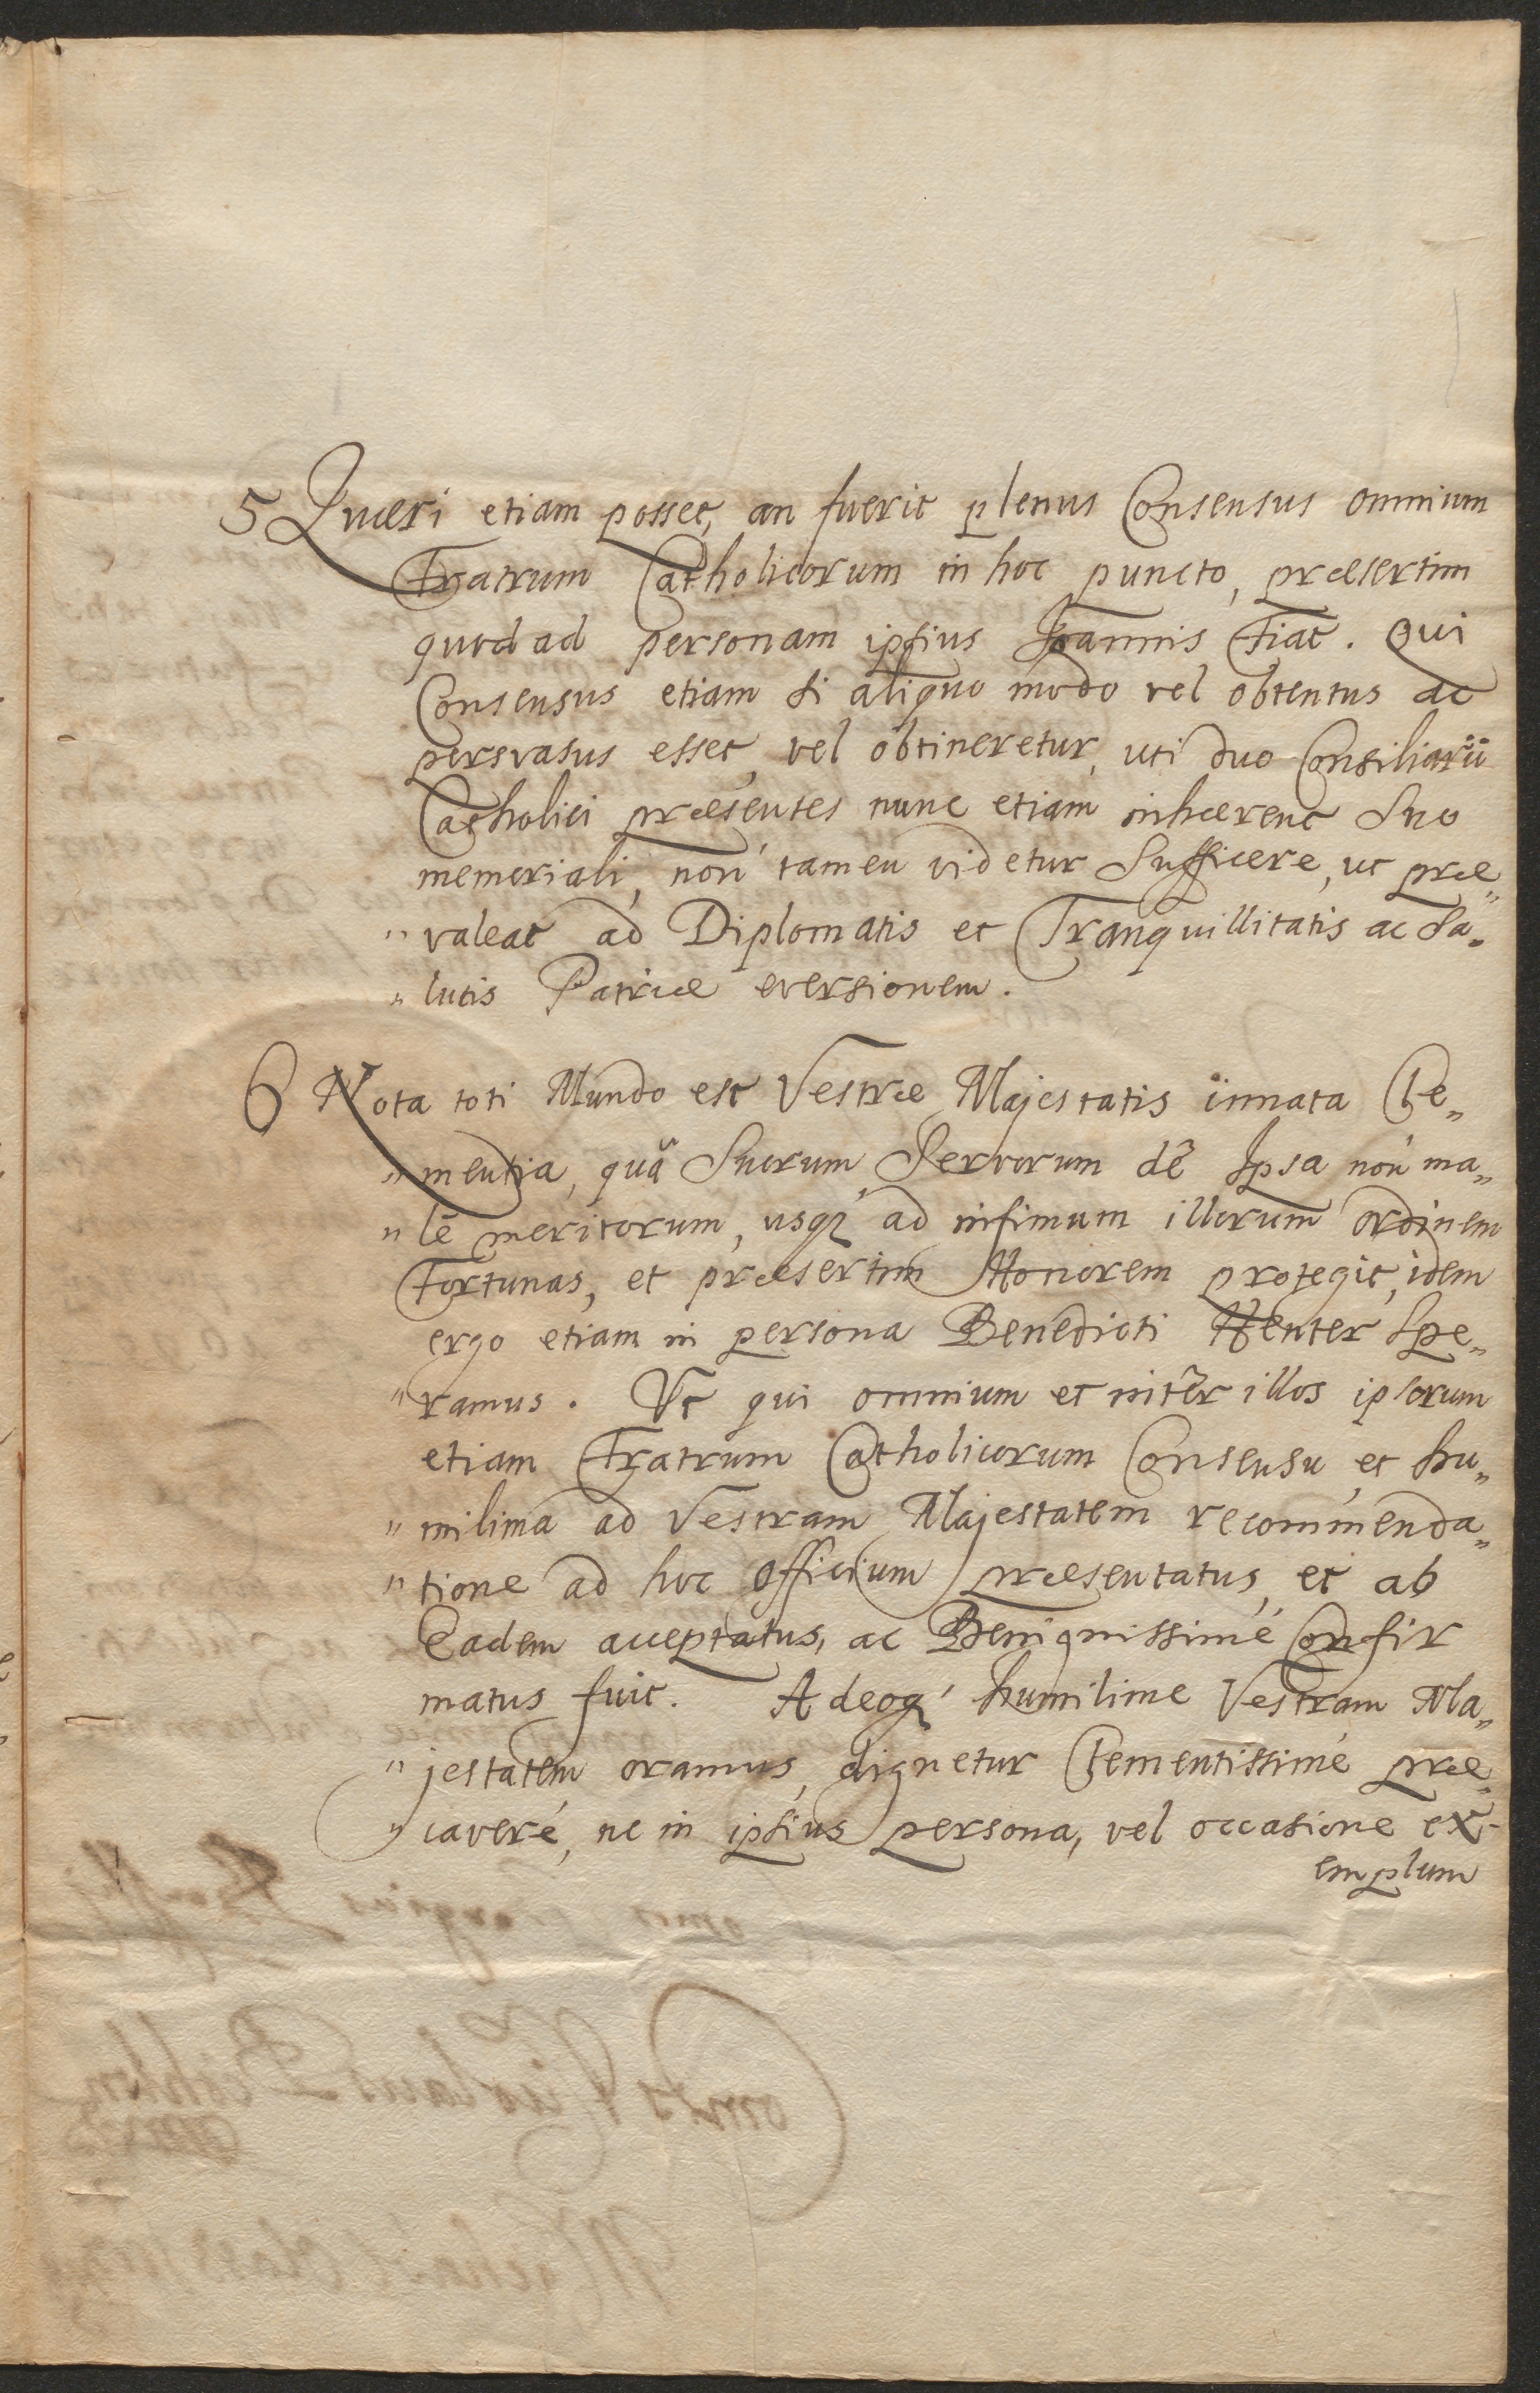 5 Quæri etiam posset, an fuerit plenus Consensus omnium
Fratrum Catholicorum in hoc puncto, præsertim
quod ad personam ipsius Joannis Fiat. Qui
Consensus etiam si aliquo modo vel obtentus ac
persvasus esset, vel obtineretur, uti duo Consiliarii
Catholici præsentes nunc etiam inhærent suo
memoriali, non tamen videtur sufficere, ut præ„
„valeat ad Diplomatis et Tranquillitatis ac Sa„
„lutis Patriæ eversionem.
6 Nota toti Mundo est Vestræ Majestatis innata Cle„
„mentia, quâ Suorum Servorum dē Ipsa non ma„
„lē meritorum, usq́ ad infimum illorum ordinem
Fortunas, et præsertim Honorem protegit, idem
ergo etiam in persona Benedicti Henter Spe„
„ramus. Ut qui omnium et intēr illos ipsorum
etiam Fratrum Catholicorum Consensu, et hu„
„milima ad Vestram Majestatem recommenda„
„tione ad hoc officium præsentatus, et ab
Eadem acceptatus, ac Benignissimé Confir
matus fuit. Adeoq́ humilime Vestram Ma„
„jestatem oramus, dignetur Clementissimé præ„
„caveré, ne in ipsius persona, vel occasione ex-
emplum